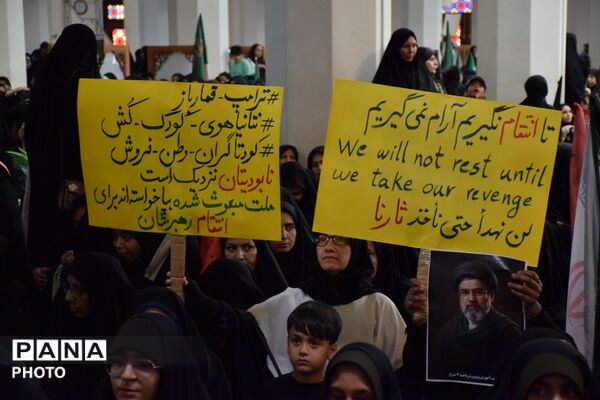 #ترامپ-قمارباز
#نتانیاهوی-کودک-کش
#کودتاگران-وطن-فروش
نابودیتان نزدیک است
ملت مبعوث شده بپاخواسته‌اند برای
انتقام رهبرشان
تا انتقام نگیریم آرام نمی‌گیریم
We will not rest until
we take our revenge
لن نهدأ حتی نأخذ ثارنا
PANA
PHOTO